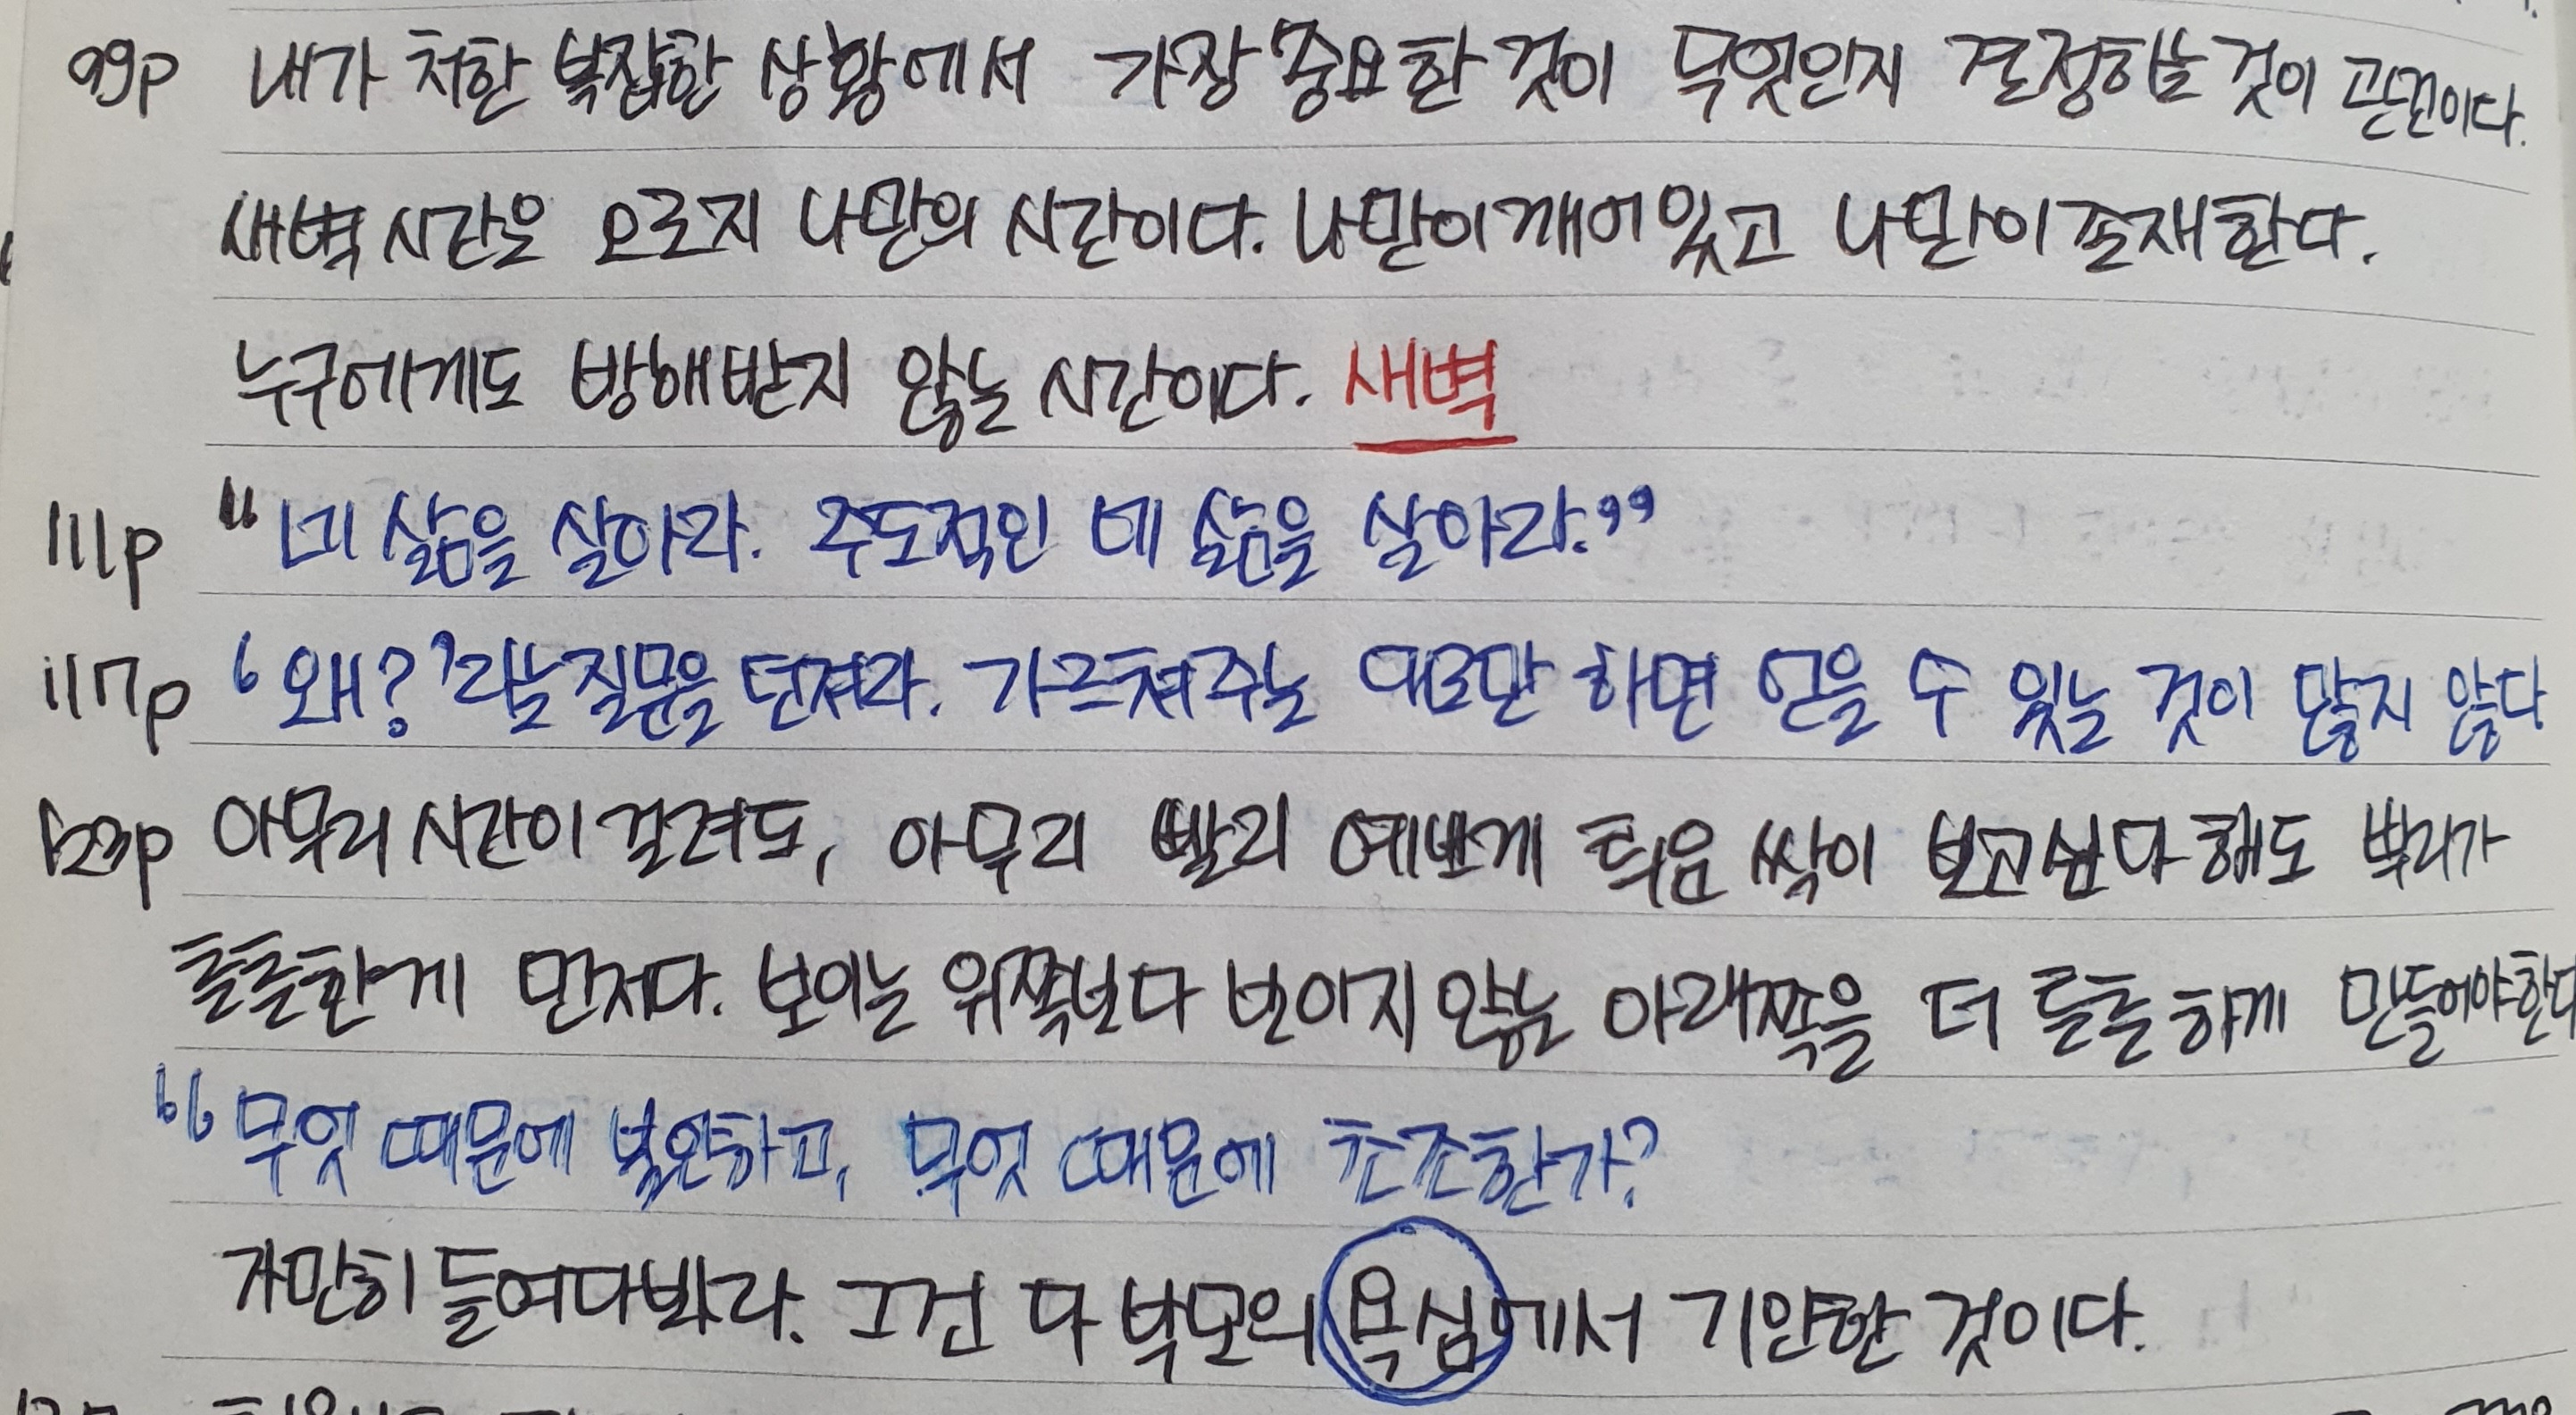 99p 내가 처한 복잡한 상황에서 가장 중요한 것이 무엇인지 결정하는 것이 관건이다.
새벽 시간은 오로지 나만의 시간이다. 나만이 깨어있고 나만이 존재한다.
누구에게도 방해받지 않는 시간이다. 새벽
111p "네 삶을 살아라. 주도적인 네 삶을 살아라."
117p '왜?'라는 질문을 던져라. 가르쳐주는 대로만 하면 얻을 수 있는 것이 많지 않다
123p 아무리 시간이 걸려도, 아무리 빨리 예쁘게 틔운 싹이 보고싶다 해도 뿌리가
튼튼한게 먼저다. 보이는 위쪽보다 보이지 않는 아래쪽을 더 튼튼하게 만들어야한다
"무엇 때문에 불안하고, 무엇 때문에 초조한가?
가만히 들여다봐라. 그건 다 부모의 욕심에서 기인한 것이다.